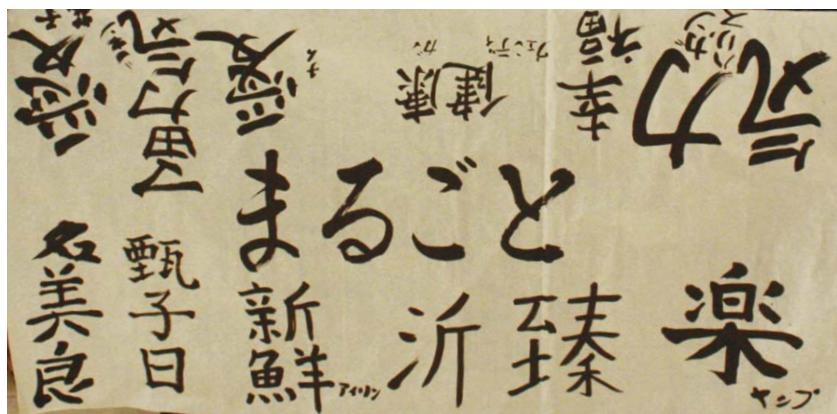 愛
勇気
愛
健康
幸福
気力
まるごと
名美良
甄子日
新鮮
アイリン
沂臻
楽
ヤンプ